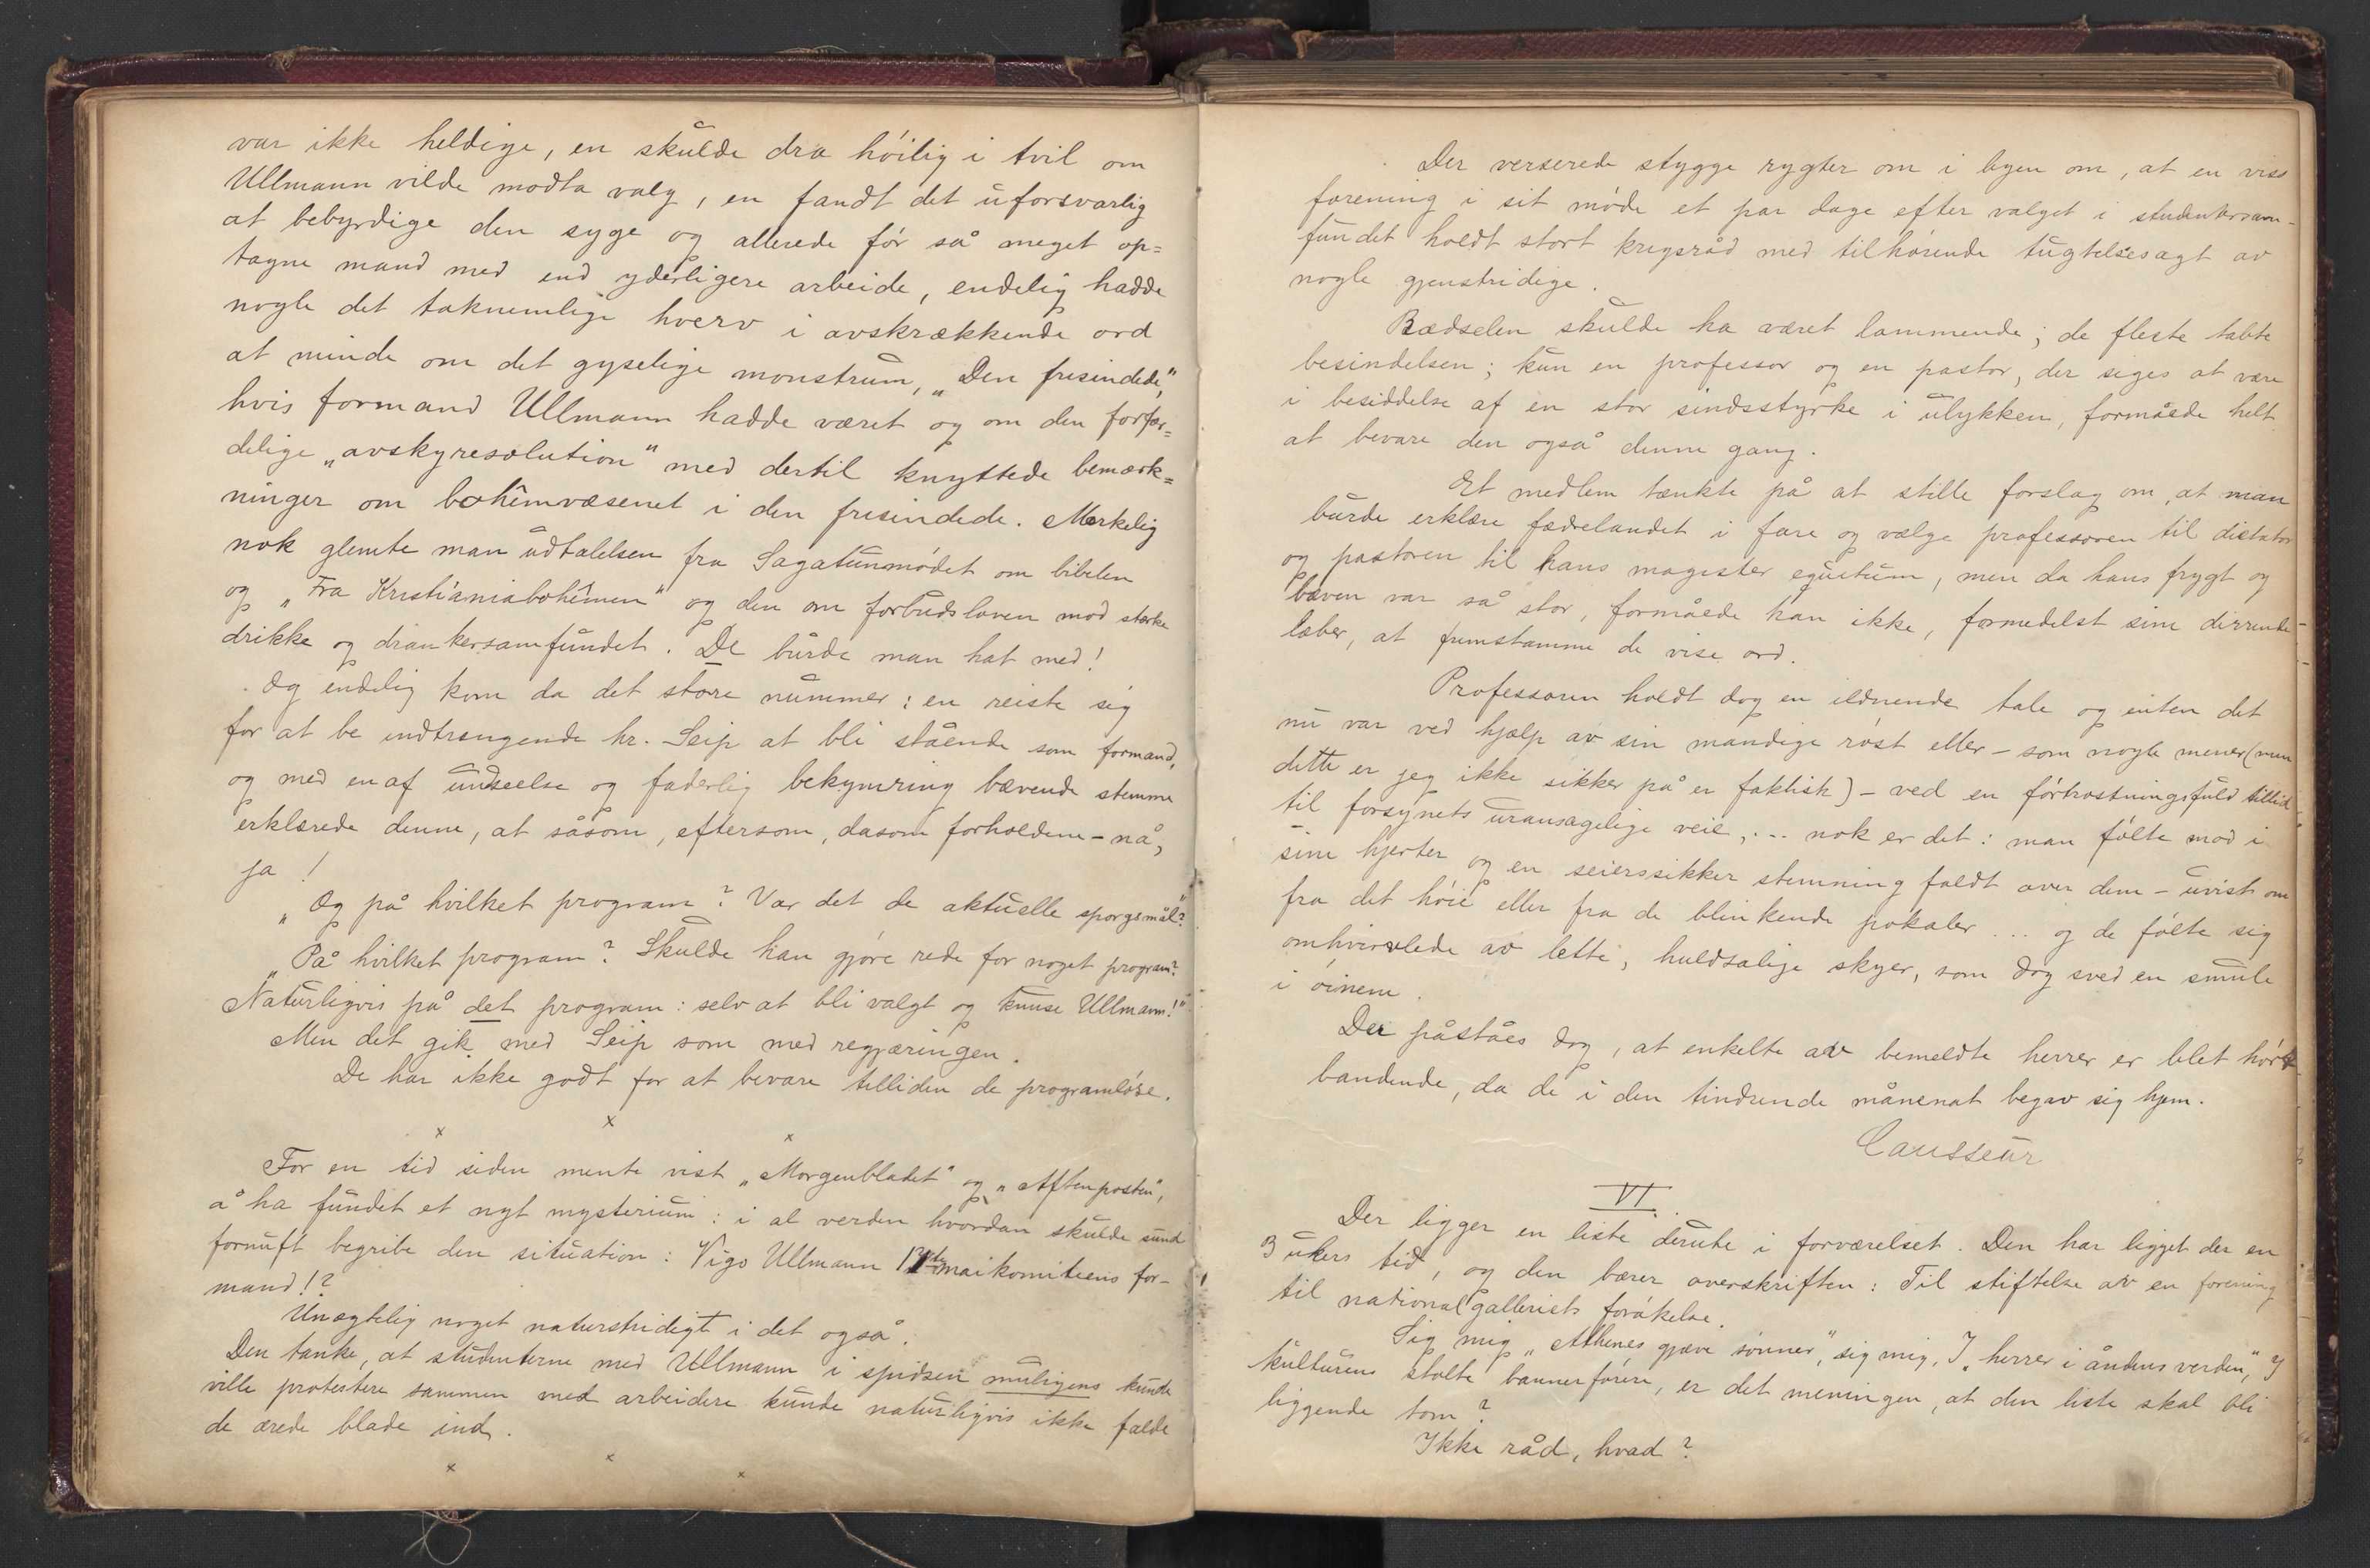 var ikke heldige, en skulde dra høilig i tvil om
Ullmann vilde modta valg, en fandt det uforsvarlig
at bebyrdige den syge og allerede før så meget op=
tagne mand med end yderligere arbeide, endelig hadde
nogle det taknemlige hverv i avskrækkende ord
at minde om det gyselige monstrum, „Den frisindede,"
hvis formand Ullmann hadde været og om den forfær=
delige „avskyresolution" med dertil knyttede bemærk=
ninger om bohêmvæsenet i den frisindede. Merkelig
nok glemte man udtalelsen fra Sagatunmødet om bibelen
og „Fra Kristianiabohêmen" og den om forbudsloven mod sterke
drikke og drankersamfundet. De burde man hat med!
Og endelig kom da det store nummer: en reiste sig
for at be indtrengende hr. Seip at bli stående som formand,
og med en af undseelse og faderlig bekymring bævende stemme
erklærede denne, at såsom, eftersom, dasom forholdene – nå,
ja!
„Og på hvilket program? Var det de aktuelle spørgsmål?"
„På hvilket program? Skulde han gjøre rede for noget program?
Naturligvis på det program: selv at bli valgt og knuse Ullmann!"
Men det gik med Seip som med regjæringen.
De har ikke godt for at bevare tilliden de programløse.
x x x
For en tid siden mente vist „Morgenbladet" og „Aftenposten",
å ha fundet et nyt mysterium: i al verden hvordan skulde sund
fornuft begribe den situation: Vigo Ullmann 17de maikomiteens for-
mand!?
Unægtelig noget naturstridigt i det også.
Den tanke, at studenterne med Ullmann i spidsen muligens kunde
ville protestere sammen med arbeidere kunde naturligvis ikke falde
de ærede blade ind.
x x x
Der verserede stygge rygter om i byen om, at en viss
forening i sit møde et par dage efter valget i studentersam-
fundet holdt stort krigsråd med tilhørende tugtelsesagt av
nogle gjenstridige.
Rædselen skulde ha været lammende; de fleste tabte
besindelsen; kun en professor og en pastor, der siges at være
i besiddelse af en stor sindsstyrke i ulykken, formåede helt
at bevare den også denne gang.
Et medlem tænkte på at stille forslag om, at man
burde erklære fædrelandet i fare og vælge professoren til dictator
og pastoren til hans magister equitum, men da hans frygt og
bæven var så stor, formåede han ikke, formedelst sine dirrende
læber, at fremstamme de vise ord.
Professoren holdt dog en ildnende tale og enten det
nu var ved hjælp av sin mandige røst eller – som nogle mener (men
dette er jeg ikke sikker på er faktisk) – ved en førtrøstningsfuld tillid
til forsynets uransagelige veie, ... nok er det: man følte mod i
sine hjerter og en seierssikker stemning faldt over dem – uvist om
fra det høie eller fra de blinkende pokaler ... og de følte sig
omhvirvlede av lette, huldsalige skyer, som dog sved en smule
i øinene.
Der påståes dog, at enkelte av bemeldte herrer er blet hørt
bandende, da de i den tindrende månenat begav sig hjem.
Causseur
VI.
Der ligger en liste derute i forværelset. Den har ligget der en
3 ukers tid, og den bærer overskriften: Til stiftelse av en forening
til nationalgalleriets forøkelse.
Sig mig „Athenes gjæve sønner", sig mig, I „herrer i åndens verden," I
kulturens stolte bannerførere, er det meningen, at den liste skal bli
liggende tom?
Ikke råd, hvad?